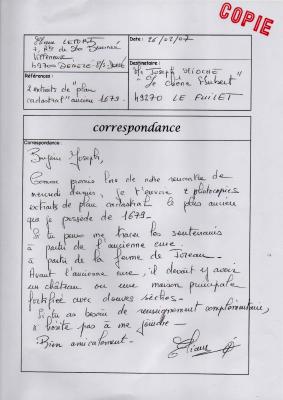 COPIE
Eliane LETORT
7, Rue du Dno Beaunier
Villeneuve
49700 DENEZÉ S/s DOUÉ
Date : 26/02/07
Destinataire :
Mr Joseph VIOCHE
"Le Chêne Hubert"
49270 LE FUILET
Références :
2 extraits de "plan
cadastral" ancien 1679.
correspondance
Correspondance :
Bonjour Joseph,
Comme promis lors de notre rencontre de
mercredi dernier, je t'envoie 2 photocopies
extraits de plan cadastral le plus ancien
que je possède de 1679 -
Si tu peux me tracer les souterrains
à partir de l'ancienne cure.
à partir de la ferme de Toreau -
Avant l'ancienne cure, il devait y avoir
un château ou une maison principale
fortifiée avec douves sèches -
Si tu as besoin de renseignement complémentaire,
n'hésite pas à me joindre -
Bien amicalement -
Eliane